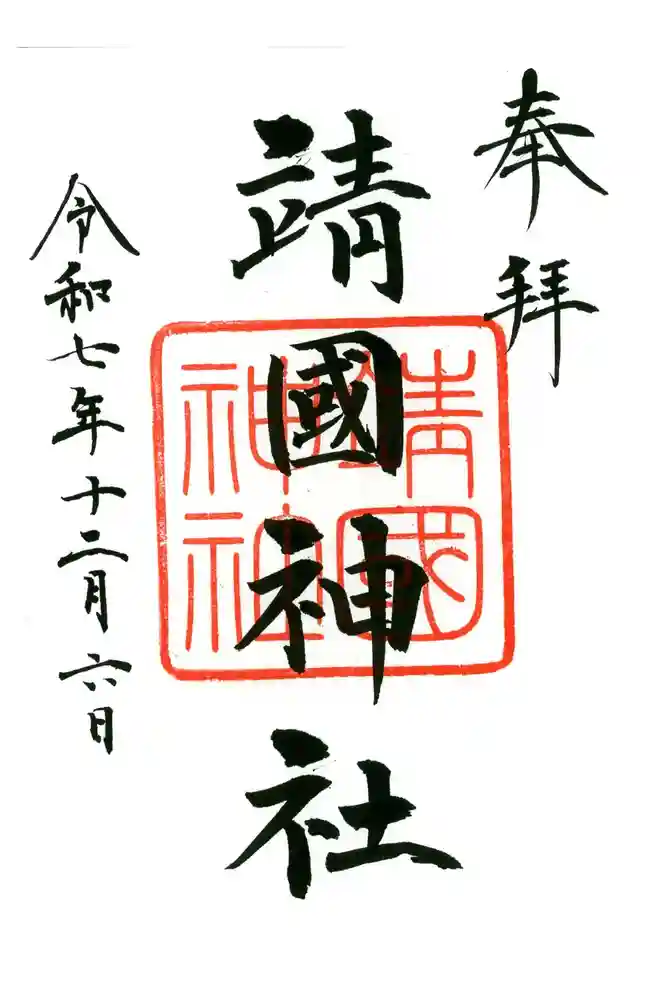 奉拝
靖國神社
靖國
神社
令和七年十二月六日